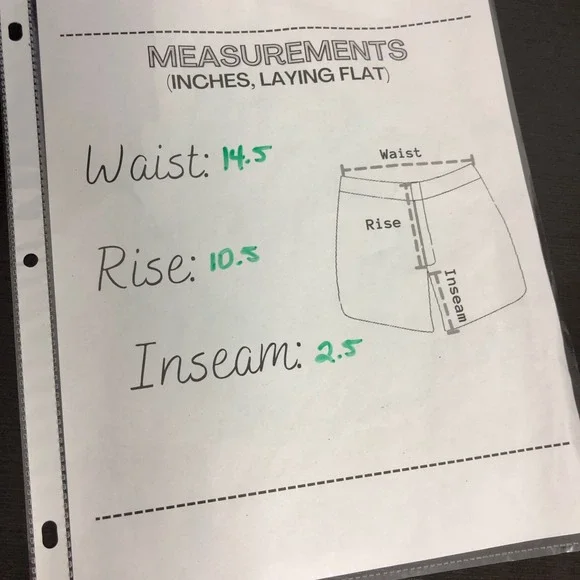 MEASUREMENTS
(INCHES, LAYING FLAT)
Waist: 14.5
Rise: 10.5
Inseam: 2.5
Waist
Rise
Inseam